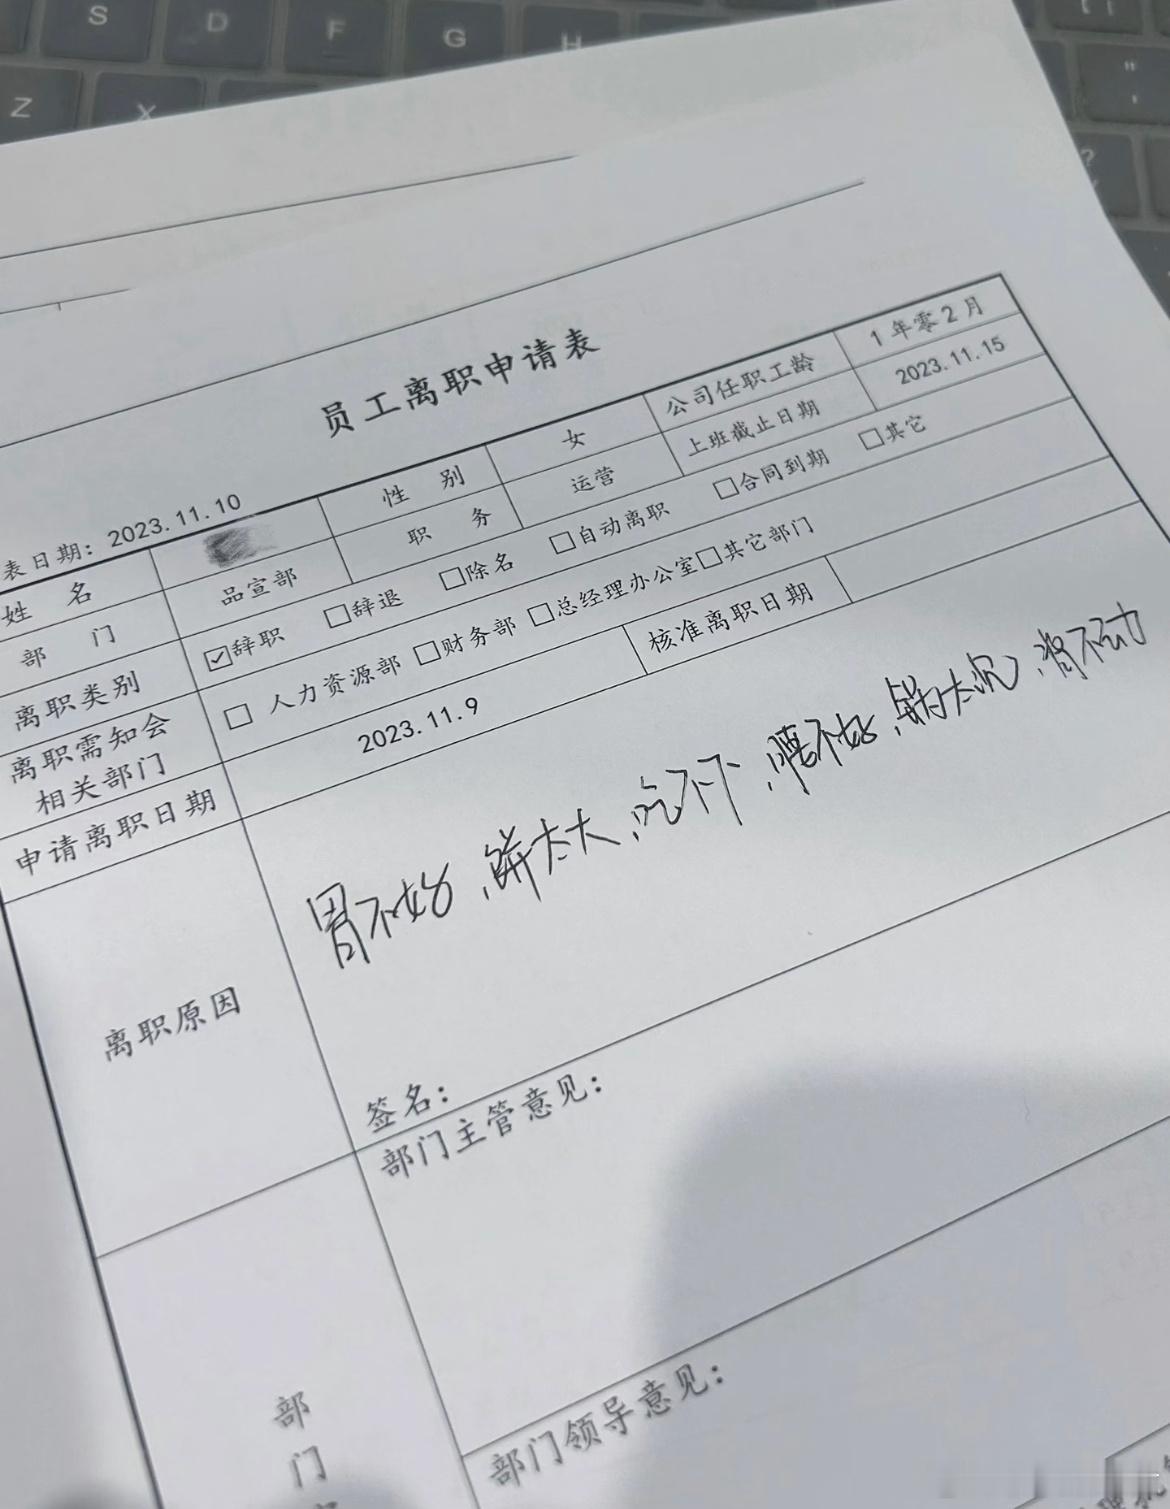 S D F G H
Z X
员工离职申请表
表日期：2023.11.10
姓 名 性 别 女 公司任职工龄 1年零2月
部 门 品宣部 职 务 运营 上班截止日期 2023.11.15
离职类别 ☑辞职 □辞退 □除名 □自动离职 □合同到期 □其它
离职需知会
相关部门 □ 人力资源部 □财务部 □总经理办公室 □其它部门
申请离职日期 2023.11.9 核准离职日期
离职原因 胃不好，饼太大，吃不下，腰不好，锅太沉，背不动
签名：
部门主管意见：
部
门
部门领导意见：